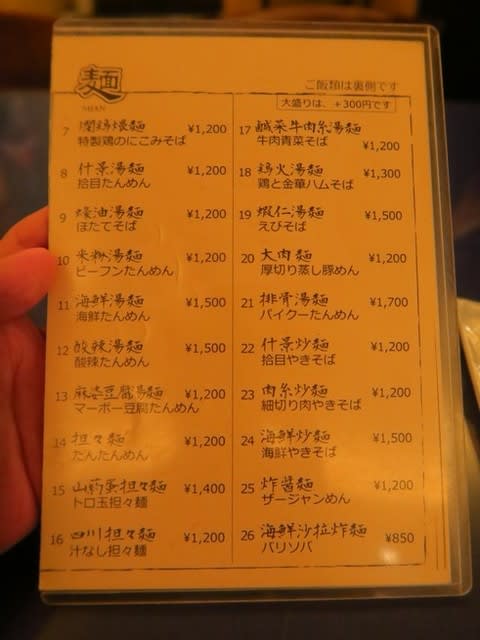 麺
MIAN
ご飯類は裏側です
大盛りは、+300円です
7 潤鶏煨麺 ¥1,200
特製鶏のにこみそば
8 什景湯麺 ¥1,200
拾目たんめん
9 蠔油湯麺 ¥1,200
ほたてそば
10 米粉湯麺 ¥1,200
ビーフンたんめん
11 海鮮湯麺 ¥1,500
海鮮たんめん
12 酸辣湯麺 ¥1,500
酸辣たんめん
13 麻婆豆腐湯麺 ¥1,200
マーボー豆腐たんめん
14 担々麺 ¥1,200
たんたんめん
15 山药蛋担々麺 ¥1,400
トロ玉担々麺
16 四川担々麺 ¥1,200
汁なし担々麺
17 鹹菜牛肉糸湯麺
牛肉青菜そば ¥1,200
18 鶏火湯麺 ¥1,300
鶏と金華ハムそば
19 蝦仁湯麺 ¥1,500
えびそば
20 大肉麺 ¥1,200
厚切り蒸し豚めん
21 排骨湯麺 ¥1,700
パイクーたんめん
22 什景炒麺 ¥1,200
拾目やきそば
23 肉糸炒麺 ¥1,200
細切り肉やきそば
24 海鮮炒麺 ¥1,500
海鮮やきそば
25 炸醤麺 ¥1,200
ザージャンめん
26 海鮮沙拉炸麺 ¥850
バリソバ